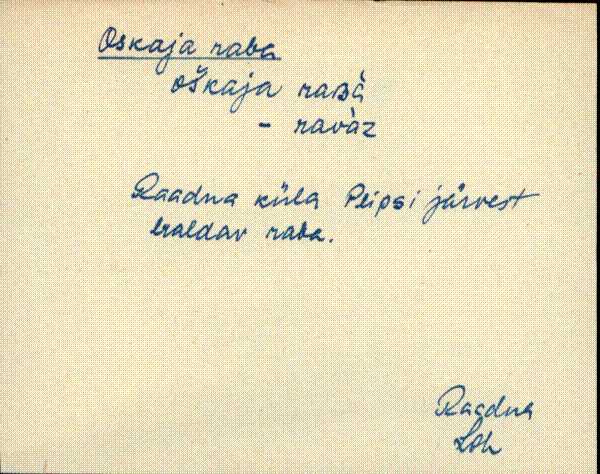 Oskaja raba
oškaja raʙà
- ravàz
Raadna küla Peipsi järvest
eraldav raba.
Raadna
Loh